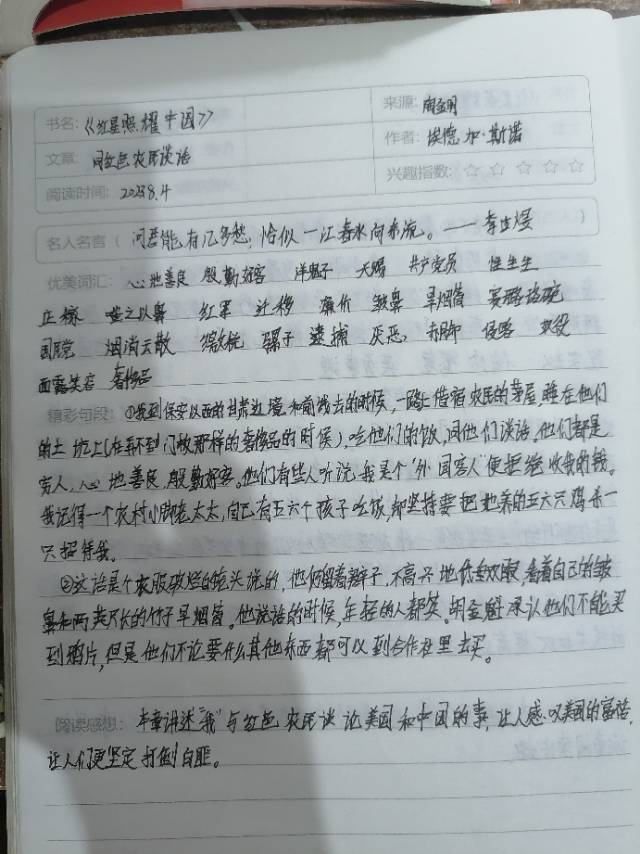 书名：《红星照耀中国》
来源：
文章：同红色农民谈话
作者：埃德加·斯诺
阅读时间：2023 8.4
兴趣指数：☆ ☆ ☆ ☆ ☆
名人名言（问君能有几多愁，恰似一江春水向东流。——李煜）
优美词汇：心地善良 殷勤好客 洋鬼子 天赐 共产党员 性生生
正棱 嗤之以鼻 红军 迁移 廉价 皱鼻 旱烟筒
国民党 烟消云散 缴械 骡子 逮捕 厌恶 赤脚 侵略
面露笑容 奢侈品
精彩句段：①我到保安以西的甘肃边境和前线去的时候，一路上借宿农民的茅屋，睡在他们
的土炕上（在弄不到门板那样的奢侈品的时候），吃他们的饭，同他们谈话。他们都是
穷人，心地善良，殷勤好客。他们有些人听说我是个“外国客人”便拒绝收我的钱。
我记得一个农村小脚老太太，自己有五六个孩子吃饭，却坚持要把她养的五六只鸡杀一
只招待我。
②这话是个衣服破烂的老头说的，他仍留着辫子，不高兴地低垂双眼，看着自己的皱
鼻和两英尺长的竹子旱烟筒。他说话的时候，年轻的人都笑。胡金魁承认他们不能买
到鸦片，但是他们不论要什么其他东西都可以到合作社里去买。
阅读感想：本章讲述“我”与红色农民谈论美国和中国的事，让人感叹美国的富裕，
让人们更坚定打倒白匪。